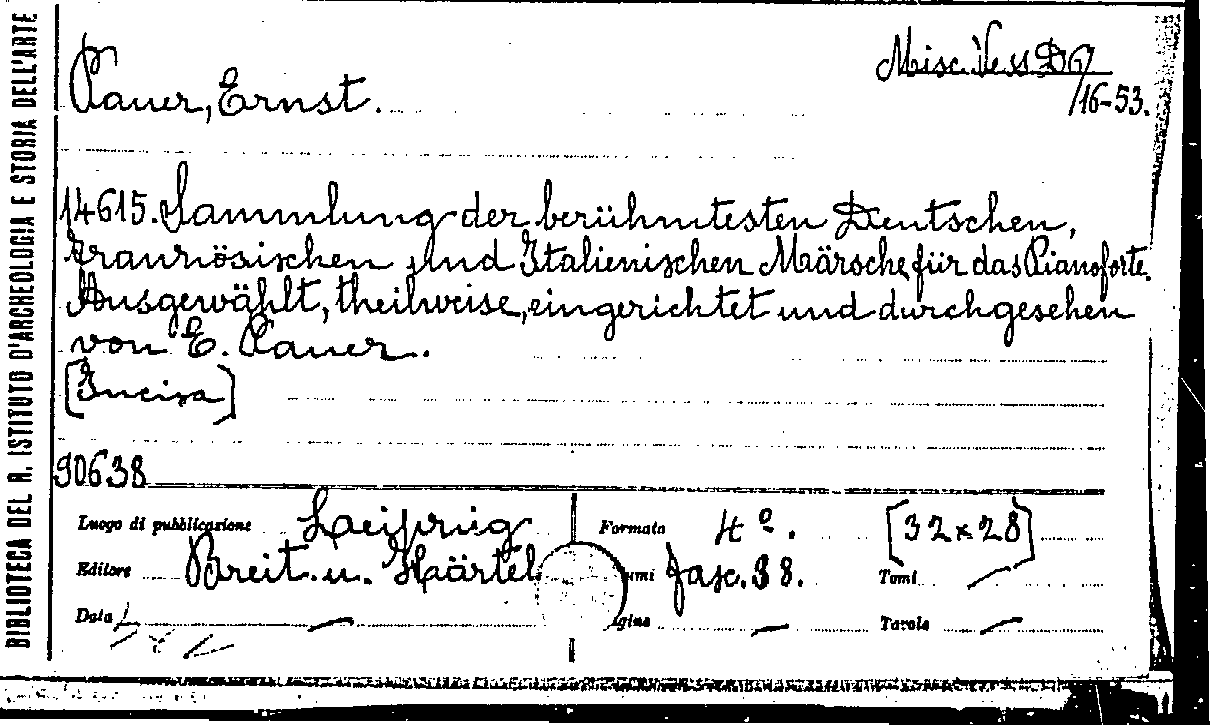 BIBLIOTECA DEL R. ISTITUTO D'ARCHEOLOGIA E STORIA DELL'ARTE
Misc. Vess. D6/
Pauer, Ernst.
/16-53.
14615. Sammlung der berühmtesten Deutschen,
Französischen und Italienischen Märsche für das Pianoforte.
Ausgewählt, theilweise, eingerichtet und durchgesehen
von E. Pauer.
[Incisa]
90638
Luogo di pubblicazione Leipzig Formato 4º. [32x28]
Editore Breit. u. Härtel umi fasc. 38. Tomi —
Data — agine — Tavole —